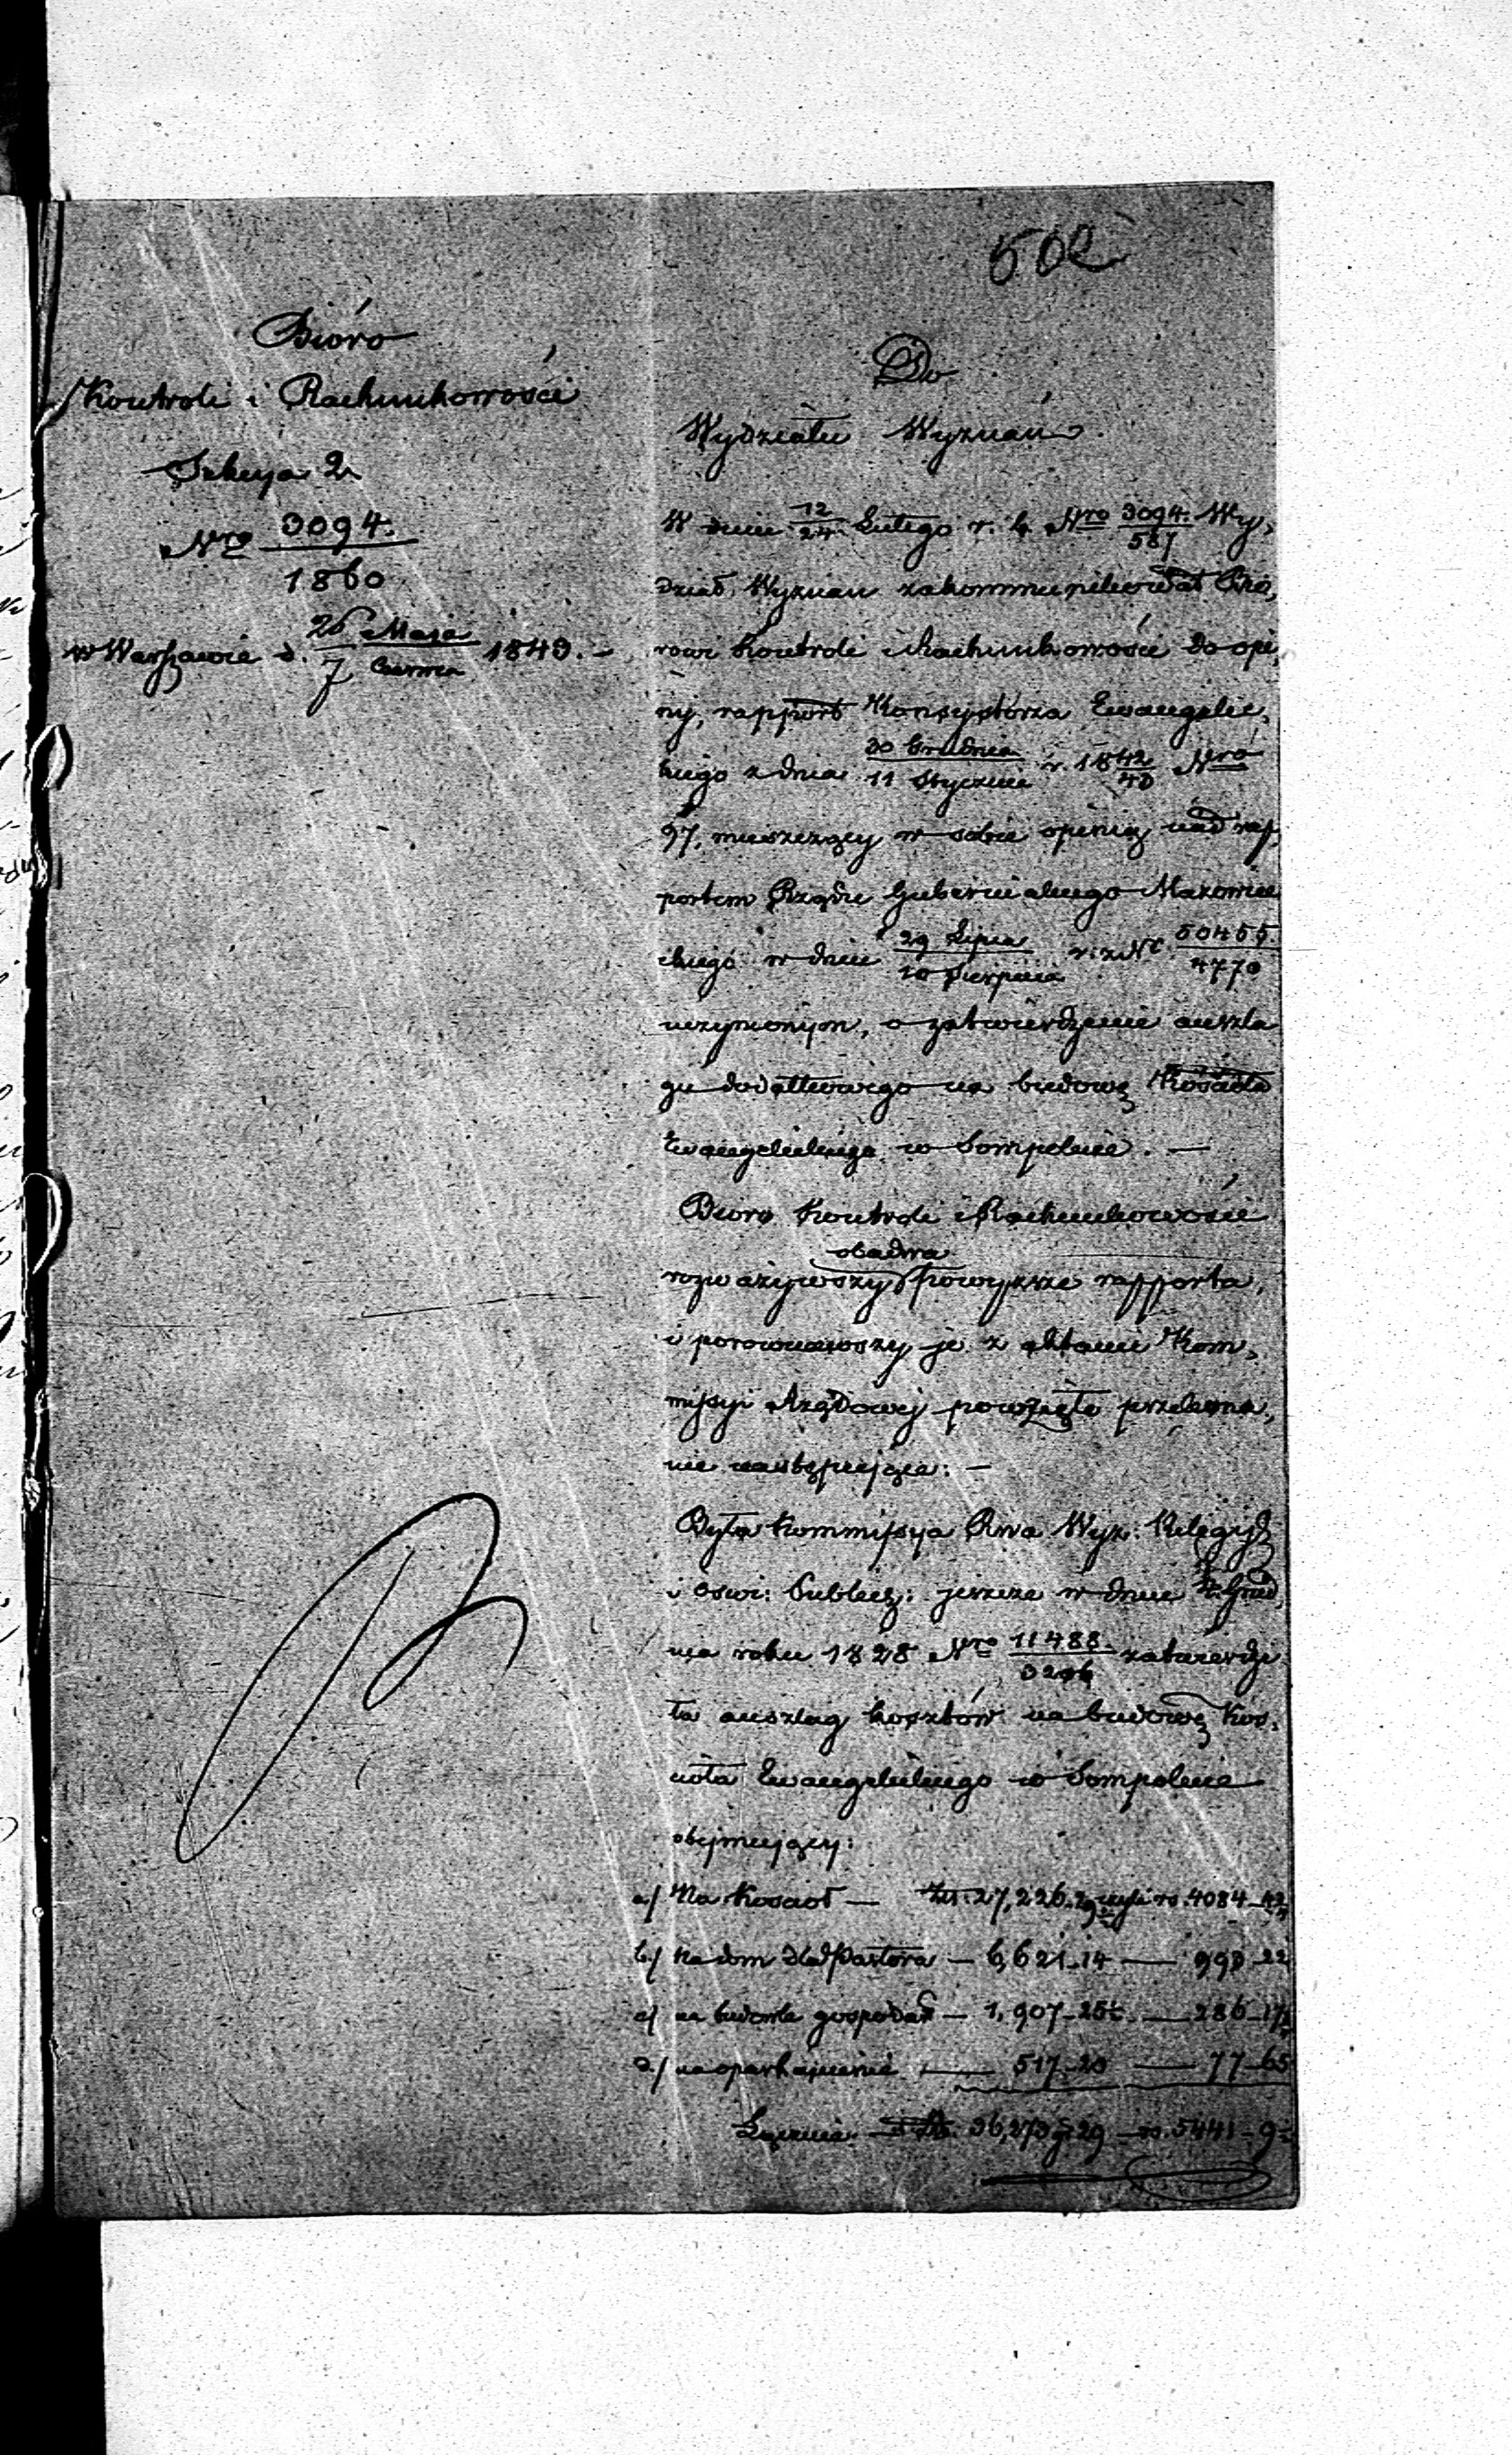 502
Bióro
Kontroli i Rachunkowości
Sekcya 2
Nro 3094.
1860
w Warszawie d. 26 Maja
7 Czerwca 1843. –
Do
Wydziału Wyznań.
W dniu 12/24 Lutego r. b. Nro 3094./587 Wy,
dział Wyznań zakommunikował Bió,
rowi Kontroli i Rachunkowości do opi,
nij, rapport Konsystorza Ewangelic,
kiego z dnia 30 Grudnia/11 Stycznia r. 1842/43 Nro
97, mieszczący w sobie opinią nad rap,
portem Rządu Gubernialnego Mazowiec
kiego w dniu 29 Lipca/10 Sierpnia r. z. Nr 50455./4770
uczynionym, o zatwierdzenie auszla
gu dodatkowego na budowę Kościoła
Ewangelickiego w Sompolnie. —
Bióro Kontroli i Rachunkowości
obadwa
rozważywszy powyższe rapporta,
i porównawszy je z aktami Kom,
missyi Rządowej powzięło przekona,
nie następujące: —
Była Kommissya Rwa Wyz: Religij:
i Oświ: Publicz: jeszcze w dniu Grud,
nia roku 1828 Nro 11488./3206 zatwierdzi
ła auszlag kosztów na budowę Koś,
cioła Ewangelickiego w Sompolnie
obejmujący:
a/ Na Kościoł — Zł. 27,226. 29 czyli rs. 4084 –
b/ Na dom dla Pastora — 6,621–14 — 993–22
c/ na budowle gospodar — 1,907–25½ — 286–17½
d/ na oparkanienie — 517–20 — 77–65
Łącznie — Zł. 36,273 gr 29 — rs. 5441–9